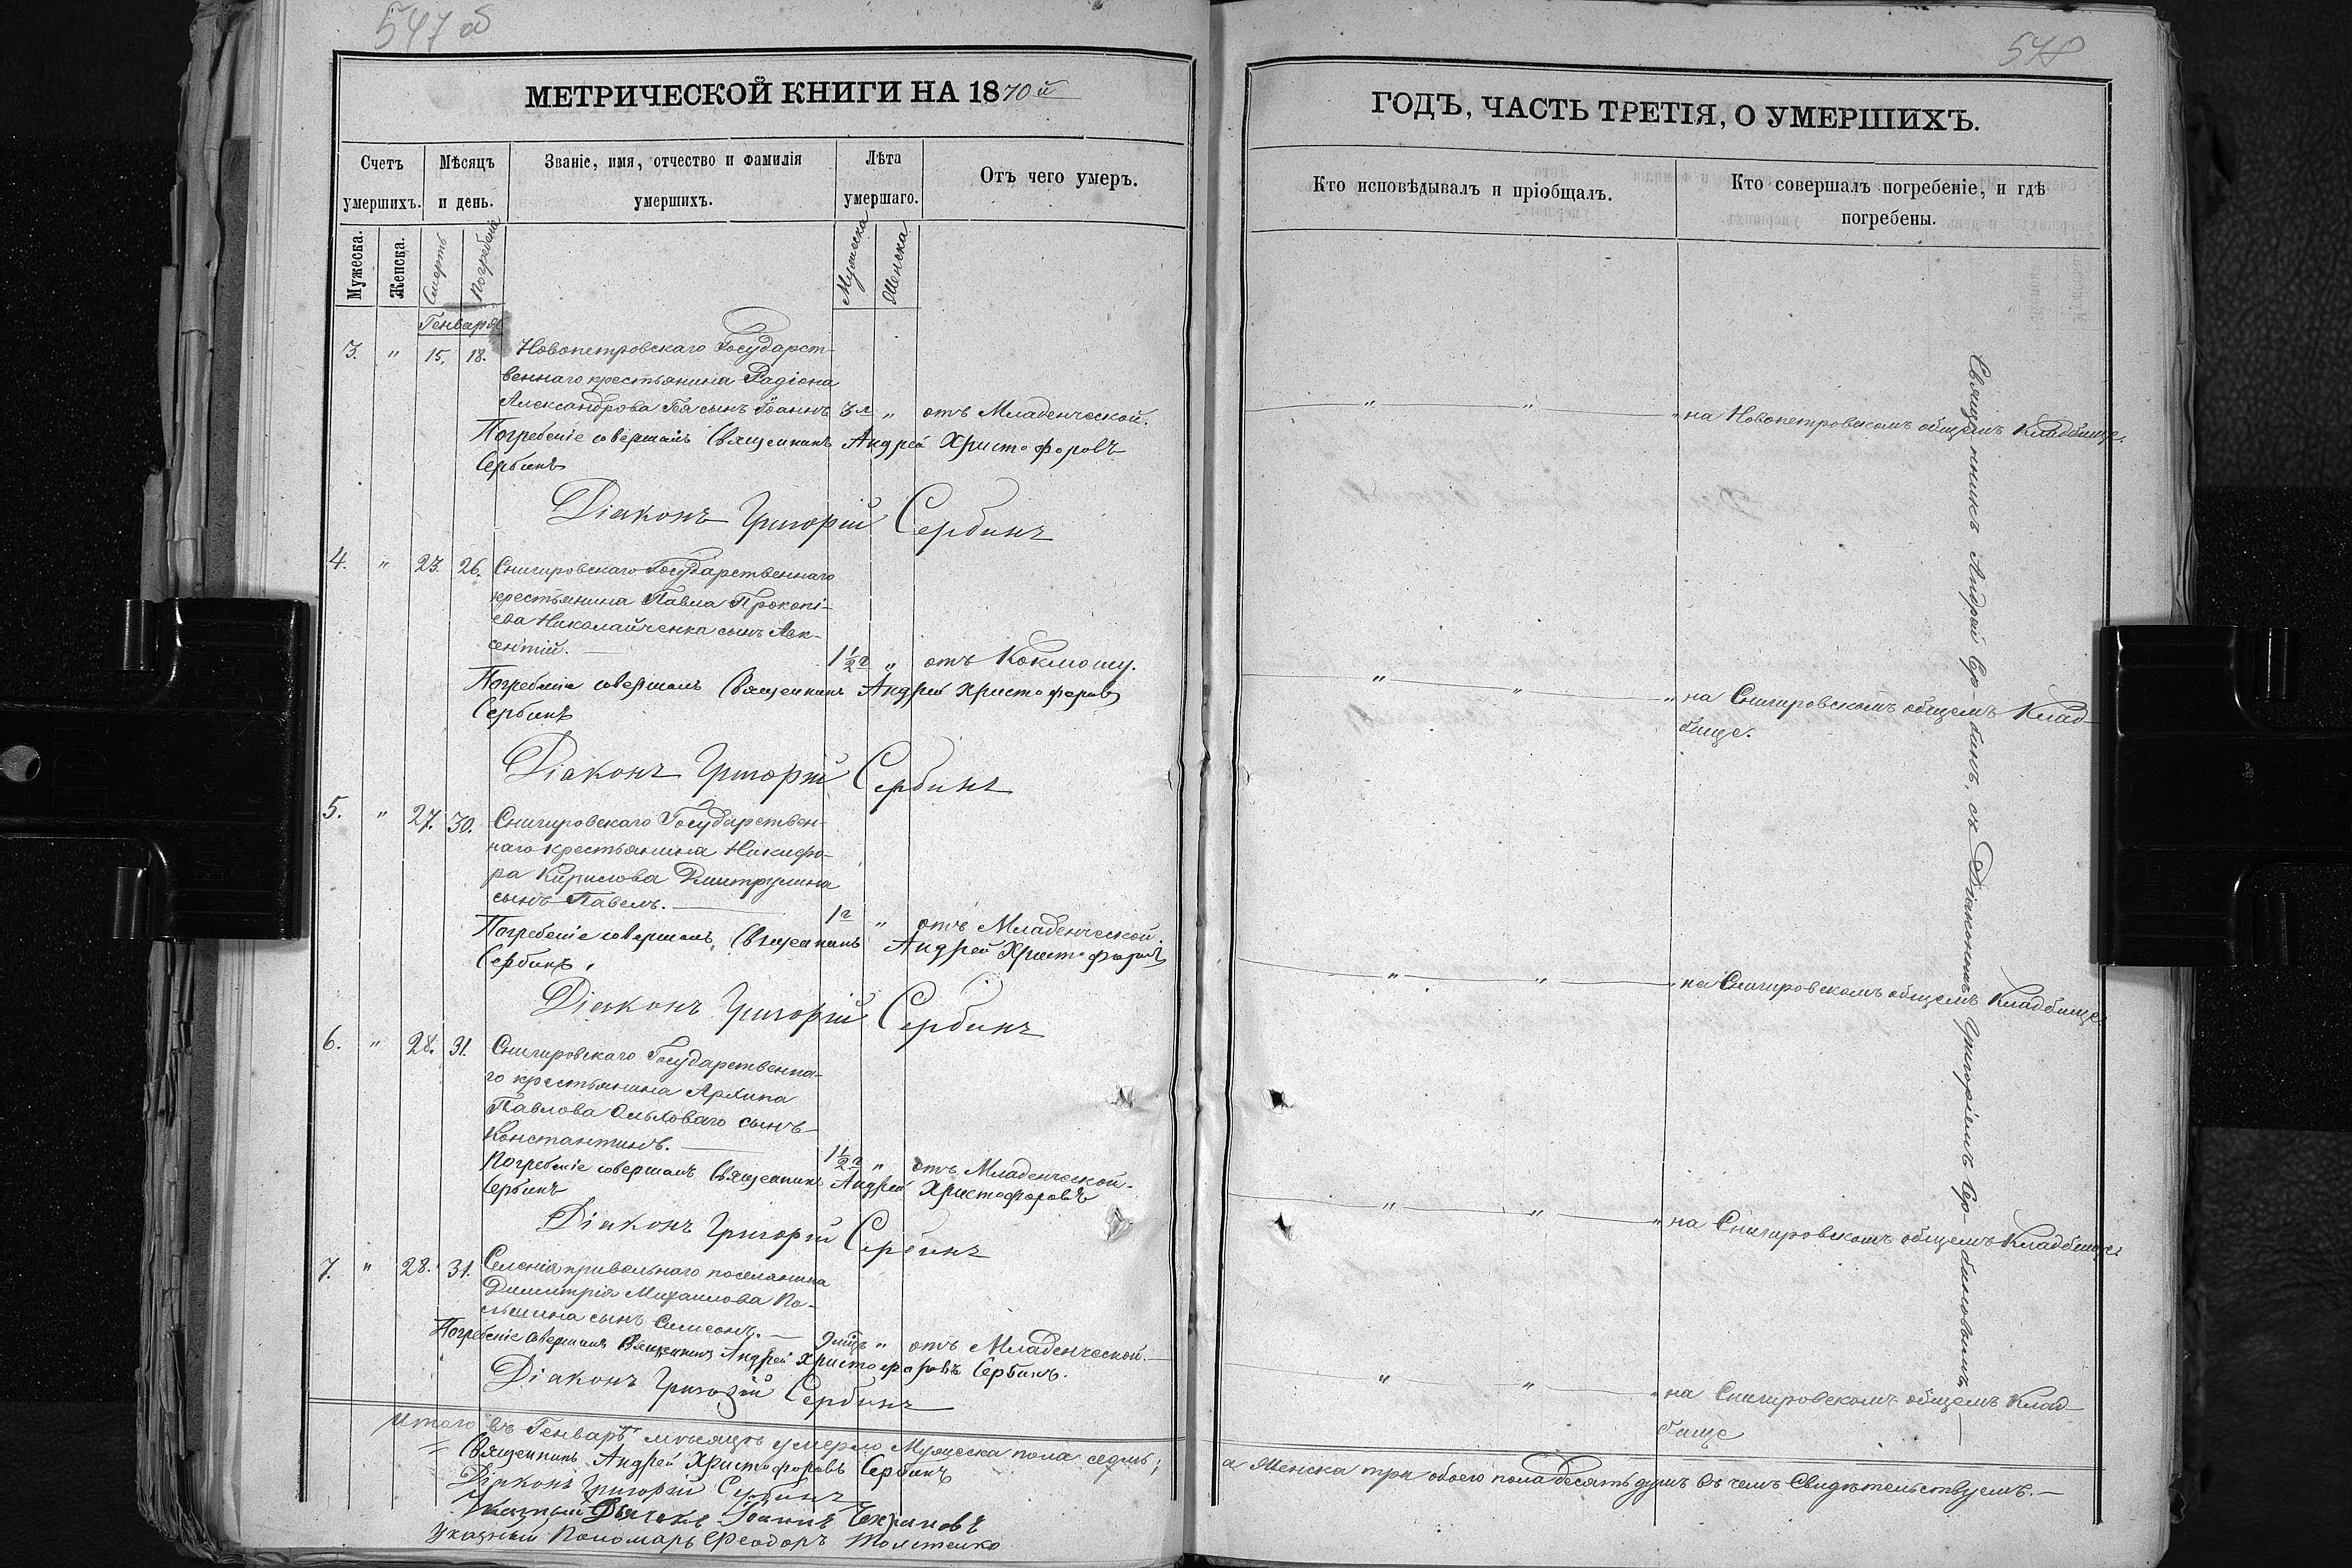 547 об
МЕТРИЧЕСКОЙ КНИГИ НА 1870й
Счетъ умершихъ.
Мѣсяцъ и день.
Званіе, имя, отчество и фамилія умершихъ.
Лѣта умершаго.
Отъ чего умеръ.
Мужеска.
Женска.
Смерть
Погребенiе
Мужеска
Женска
Генваря
3. " 15. 18. Новопетровскаго Государст-
веннаго крестьянина Радіона
Александрова сынъ Іоаннъ 3 л " отъ Младенческой.
Погребеніе совершалъ Священникъ Андрей Христофоровъ
Сербинъ
Діаконъ Григорій Сербинъ
4. " 23. 26. Снигировскаго Государственнаго
крестьянина Павла Прокопі-
ева Николайченка сынъ Авк-
сентій. 1 1/2 г " отъ Коклюшу.
Погребеніе совершалъ Священникъ Андрей Христофоровъ
Сербинъ
Діаконъ Григорій Сербинъ
5. " 27. 30. Снигировскаго Государствен-
наго крестьянина Никифо-
ра Кирилова Дмитрулина
сынъ Павелъ. 1 г " отъ Младенческой.
Погребеніе совершалъ Священникъ Андрей Христофоровъ
Сербинъ.
Діаконъ Григорій Сербинъ
6. " 28. 31. Снигировскаго Государственна-
го крестьянина Архипа
Павлова Ольховаго сынъ
Константинъ. 1 1/2 г " отъ Младенческой.
Погребеніе совершалъ Священникъ Андрей Христофоровъ
Сербинъ
Діаконъ Григорій Сербинъ
7. " 28. 31. Селенія привольнаго поселянина
Димитрія Михаилова По-
сынъ Симеонъ. 9 мцъ " отъ Младенческой.
Погребеніе совершалъ Священникъ Андрей Христофоровъ Сербинъ.
Діаконъ Григорій Сербинъ
Итого въ Генварѣ мѣсяцѣ умерло Мужеска пола седмь;
Священникъ Андрей Христофоровъ Сербинъ
Діаконъ Григорій Сербинъ
Указный Дьячекъ Іоаннъ
Указный Пономарь Феодоръ Толстенко
548
ГОДЪ, ЧАСТЬ ТРЕТІЯ, О УМЕРШИХЪ.
Кто исповѣдывалъ и пріобщалъ.
Кто совершалъ погребеніе, и гдѣ погребены.
" " " на Новопетровскомъ общемъ Кладбище.
" " " на Снигировскомъ общемъ Клад-
бище.
" " " на Снигировскомъ общемъ Кладбище
" " " на Снигировскомъ общемъ Кладбище.
" " " на Снигировскомъ общемъ Клад-
бище
Священникъ Андрей Сер-бинъ, съ Діакономъ Григоріемъ Сер-биновымъ.
а Женска три обоего пола десять душъ въ чемъ Свидѣтельствуемъ.